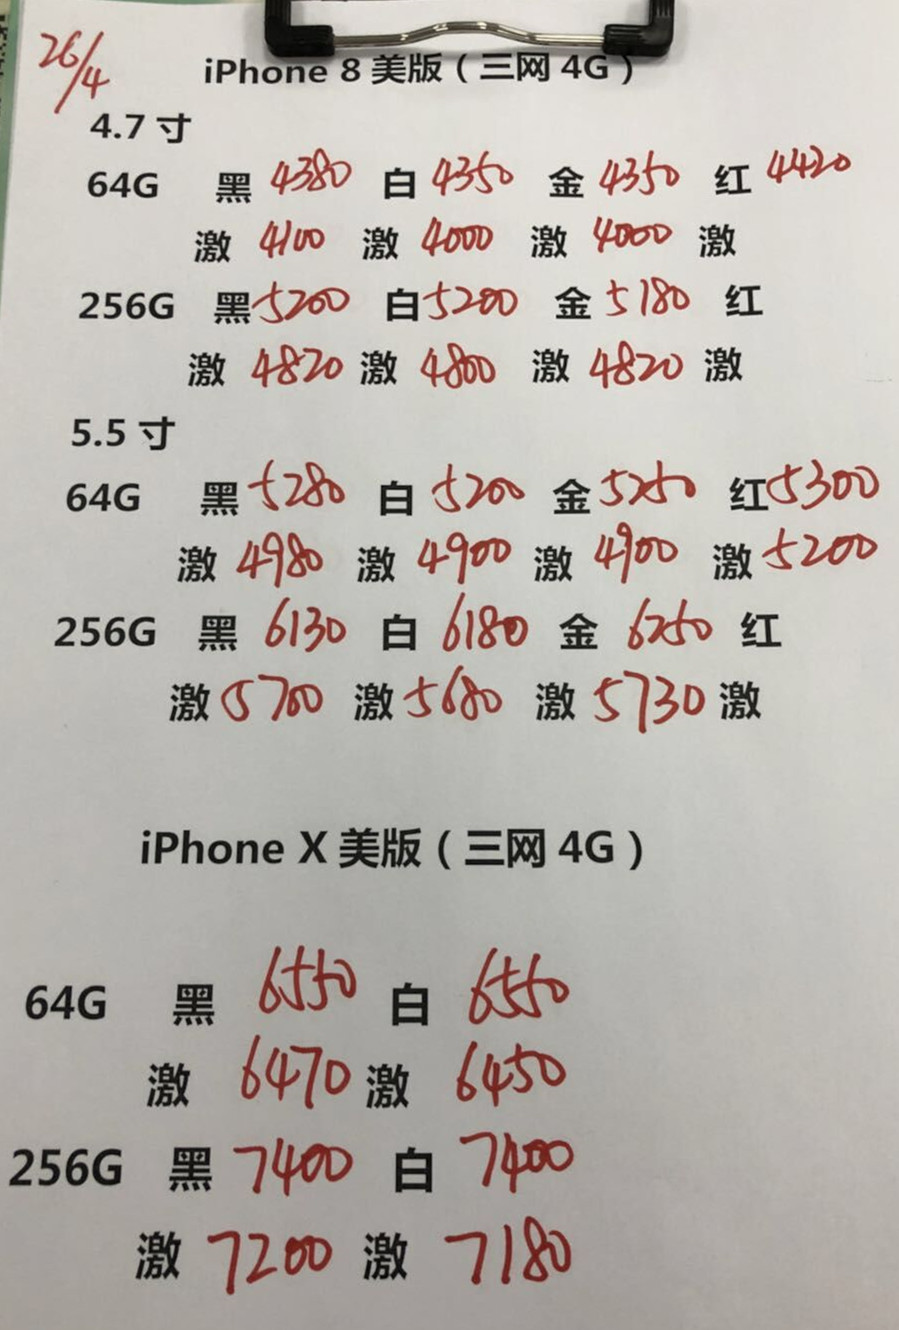 26/4
iPhone 8 美版（三网 4G）
4.7 寸
64G 黑 4380 白 4350 金 4350 红 4420
激 4100 激 4000 激 4000 激
256G 黑 5200 白 5200 金 5180 红
激 4820 激 4800 激 4820 激
5.5 寸
64G 黑 5280 白 5200 金 5250 红 5300
激 4980 激 4900 激 4900 激 5200
256G 黑 6130 白 6180 金 6250 红
激 5700 激 5680 激 5730 激
iPhone X 美版（三网 4G）
64G 黑 6550 白 6550
激 6470 激 6450
256G 黑 7400 白 7400
激 7200 激 7180